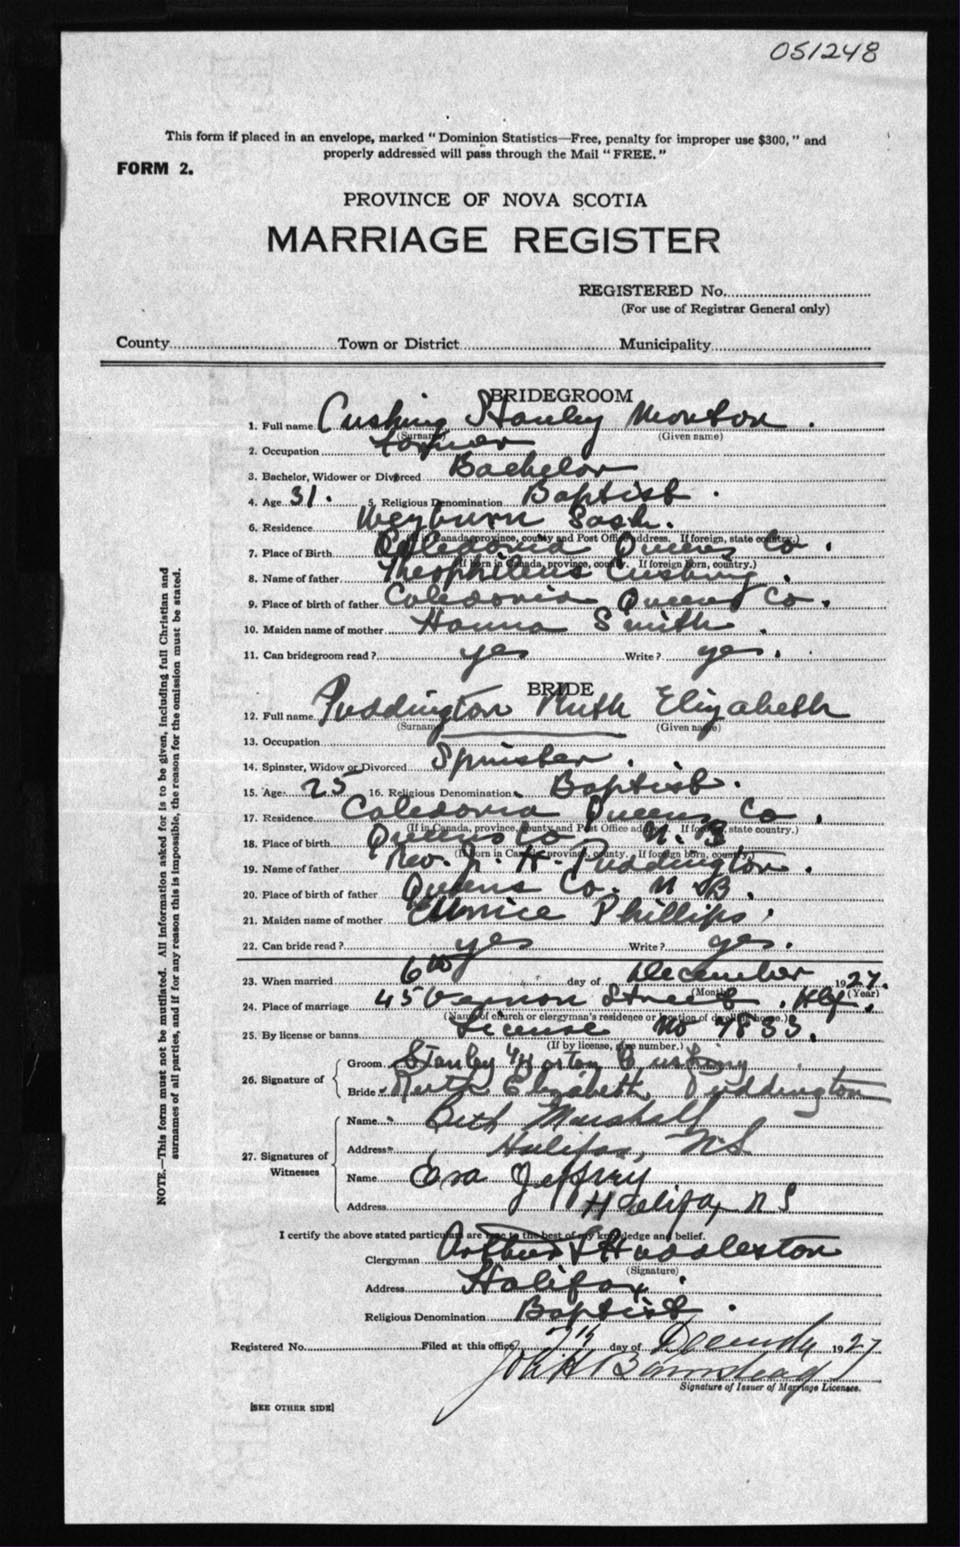 051248
This form if placed in an envelope, marked "Dominion Statistics—Free, penalty for improper use $300," and
properly addressed will pass through the Mail "FREE."
FORM 2.
PROVINCE OF NOVA SCOTIA
MARRIAGE REGISTER
REGISTERED No.
(For use of Registrar General only)
County Town or District Municipality
BRIDEGROOM
1. Full name Cushing Stanley Morton.
(Surname) (Given name)
2. Occupation farmer
3. Bachelor, Widower or Divorced Bachelor
4. Age 31. 5. Religious Denomination Baptist.
6. Residence Weyburn Sask.
(If in Canada, province, county and Post Office address. If foreign, state country.)
7. Place of Birth Caledonia Queens Co.
(If born in Canada, province, county. If foreign born, country.)
8. Name of father Theophileus Cushing.
9. Place of birth of father Caledonia Queens Co.
10. Maiden name of mother Hanna Smith.
11. Can bridegroom read? yes Write? yes.
BRIDE
12. Full name Puddington Ruth Elizabeth
(Surname) (Given name)
13. Occupation
14. Spinster, Widow or Divorced Spinster.
15. Age 25 16. Religious Denomination Baptist.
17. Residence Caledonia Queens Co.
(If in Canada, province, county and Post Office address. If foreign, state country.)
18. Place of birth Queens Co N. B
(If born in Canada, province, county. If foreign born, country.)
19. Name of father Rev. H. Puddington.
20. Place of birth of father Queens Co. N B.
21. Maiden name of mother Eunice Phillips.
22. Can bride read? yes Write? yes.
23. When married 6th day of December 1927.
(Month) (Year)
24. Place of marriage 45 Vernon Street. Hfx.
(Name of church or clergyman's residence or location of dwelling home.)
25. By license or banns License No 7833.
(If by license, give number.)
26. Signature of Groom Stanley Morton Cushing
Bride Ruth Elizabeth Puddington
27. Signatures of Witnesses Name Beth Marshall
Address Halifax, N.S
Name Ora Jeffrey
Address Halifax N S
I certify the above stated particulars are true to the best of my knowledge and belief.
Clergyman Arthur S Huddleston
(Signature)
Address Halifax.
Religious Denomination Baptist.
Registered No. Filed at this office 7th day of December 1927
John H Barnstead
Signature of Issuer of Marriage Licenses.
[SEE OTHER SIDE]
NOTE.—This form must not be mutilated. All information asked for is to be given, including full Christian and
surnames of all parties, and if for any reason this is impossible, the reason for the omission must be stated.